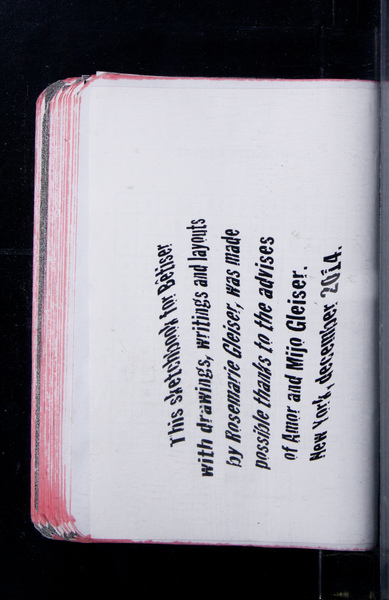 This sketchbook for Betiser
with drawings, writings and layouts
by Rosemarie Gleiser, was made
possible thanks to the advises
of Amor and Mijo Gleiser.
New York, december 2014.